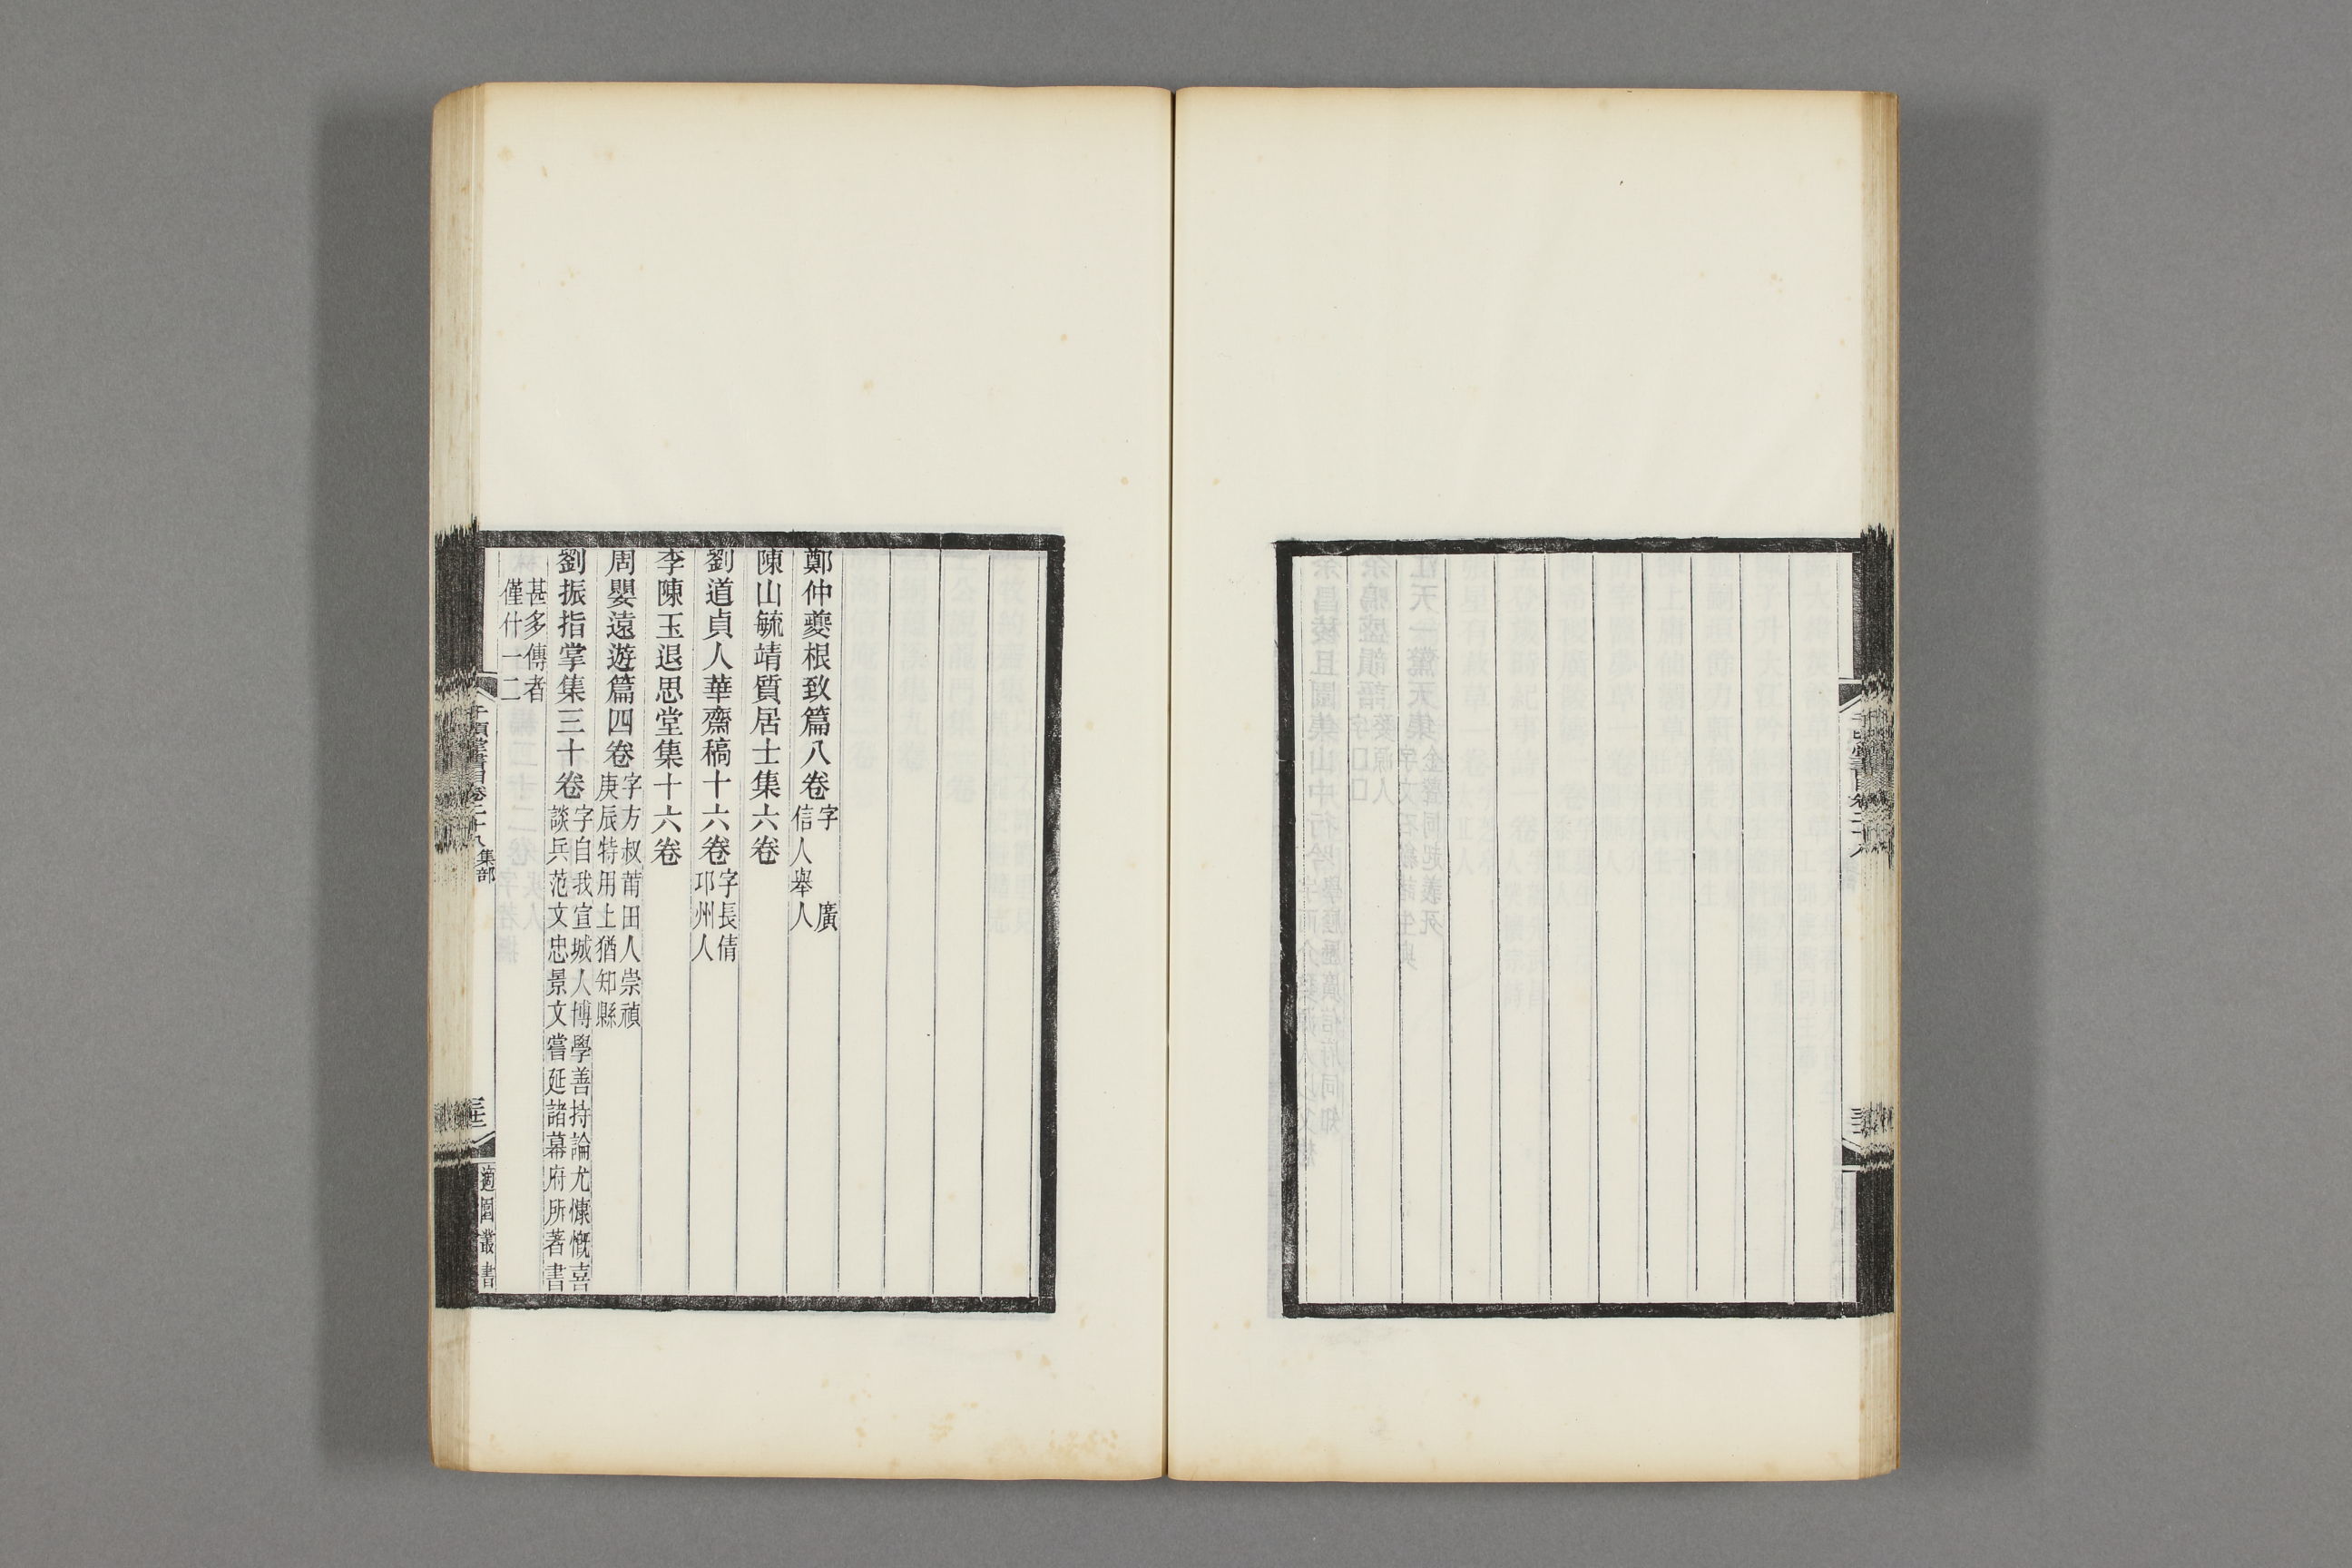 鄭仲夔根致篇八卷字　　廣信人舉人
陳山毓靖質居士集六卷
劉道貞人華齋稿十六卷字長倩邛州人
李陳玉退思堂集十六卷
周嬰遠遊篇四卷字方叔莆田人崇禎庚辰特用上猶知縣
劉振指掌集三十卷字自我宣城人博學善持論尤慷慨喜談兵范文忠景文嘗延諸幕府所著書
甚多傳者僅什一二
千頃堂書目卷二十八 集部
適園叢書